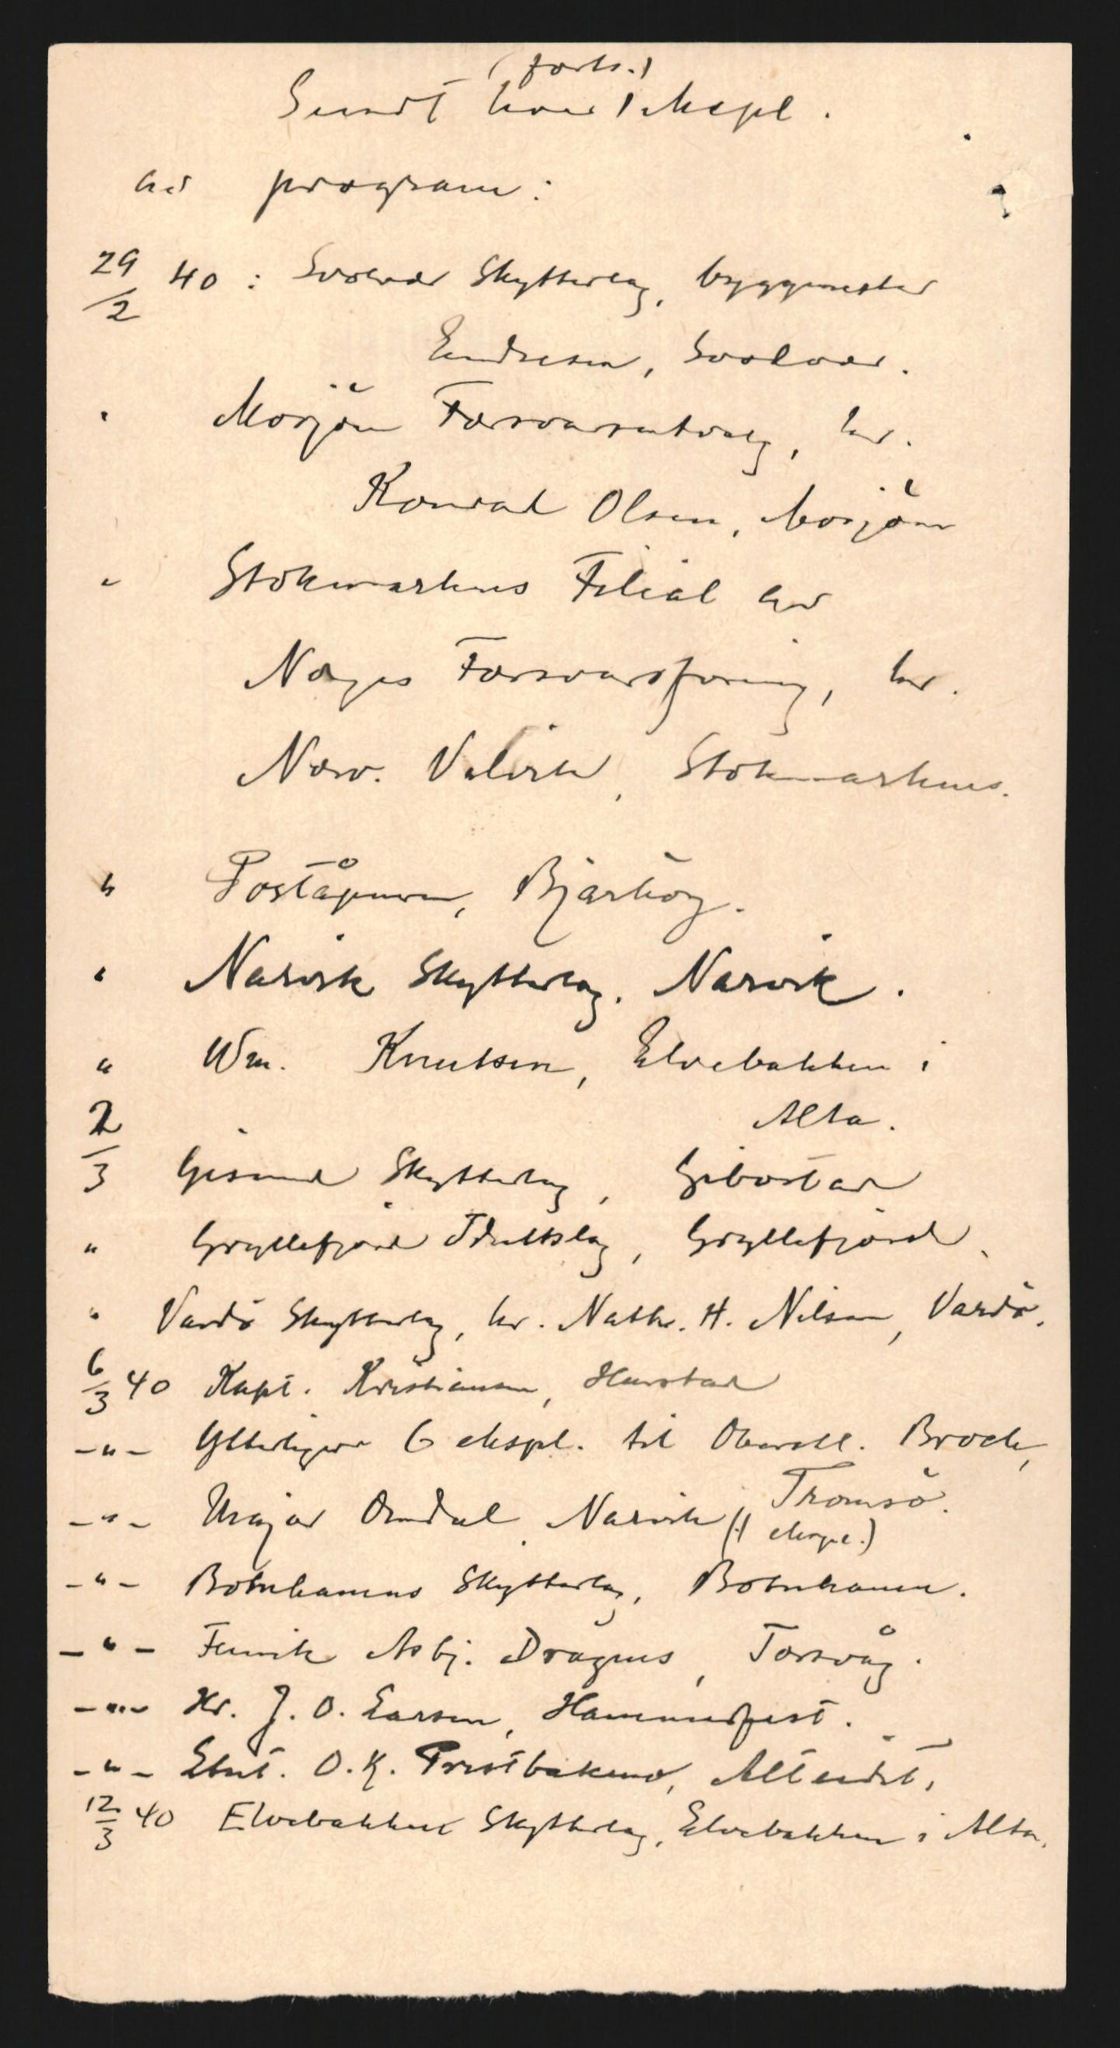 (forts.)
Sendt hver 1 ekspl.
av program:
29/2 40: Svolvær Skytterlag, byggmester
Endresen, Svolvær.
" Mosjøen Forsvarsutvalg, hr.
Konrad Olsen, Mosjøen
" Stokmarknes Filial av
Norges Forsvarsforening, hr.
Stokmarknes.
" Poståpneren, Bjarkøy.
" Narvik Skytterlag. Narvik.
" Wm. Knutsen, Elvebakken i
Alta.
2/3 Gisund Skytterlag, Gibostad
" Gryllefjord Idrettslag, Gryllefjord.
" Vardø Skytterlag, hr. Nathr. H. Nilsen, Vardø.
6/3 40 Kapt. Kristiansen, Harstad
-"- Ytterligere 6 ekspl. til Oberstl. Broch,
Tromsö.
-"- Major Omdal Narvik (1 ekspl.)
-"- Botnhamns Skytterlag, Botnhamn.
-"- Fenrik Asbj. Drågnes, Torsvåg.
-"- Hr. J. O. Larsen, Hammerfest.
-"- O. K. Prestbakmo, Alteidet.
12/3 40 Elvebakken Skytterlag, Elvebakken i Alta.